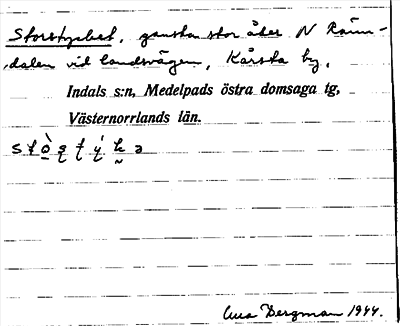 Storstycket, ganska stor åker N Räm-
dalen vid landsvägen, Kårsta by,
Indals s:n, Medelpads östra domsaga tg,
Västernorrlands län.
Bergman 1944.